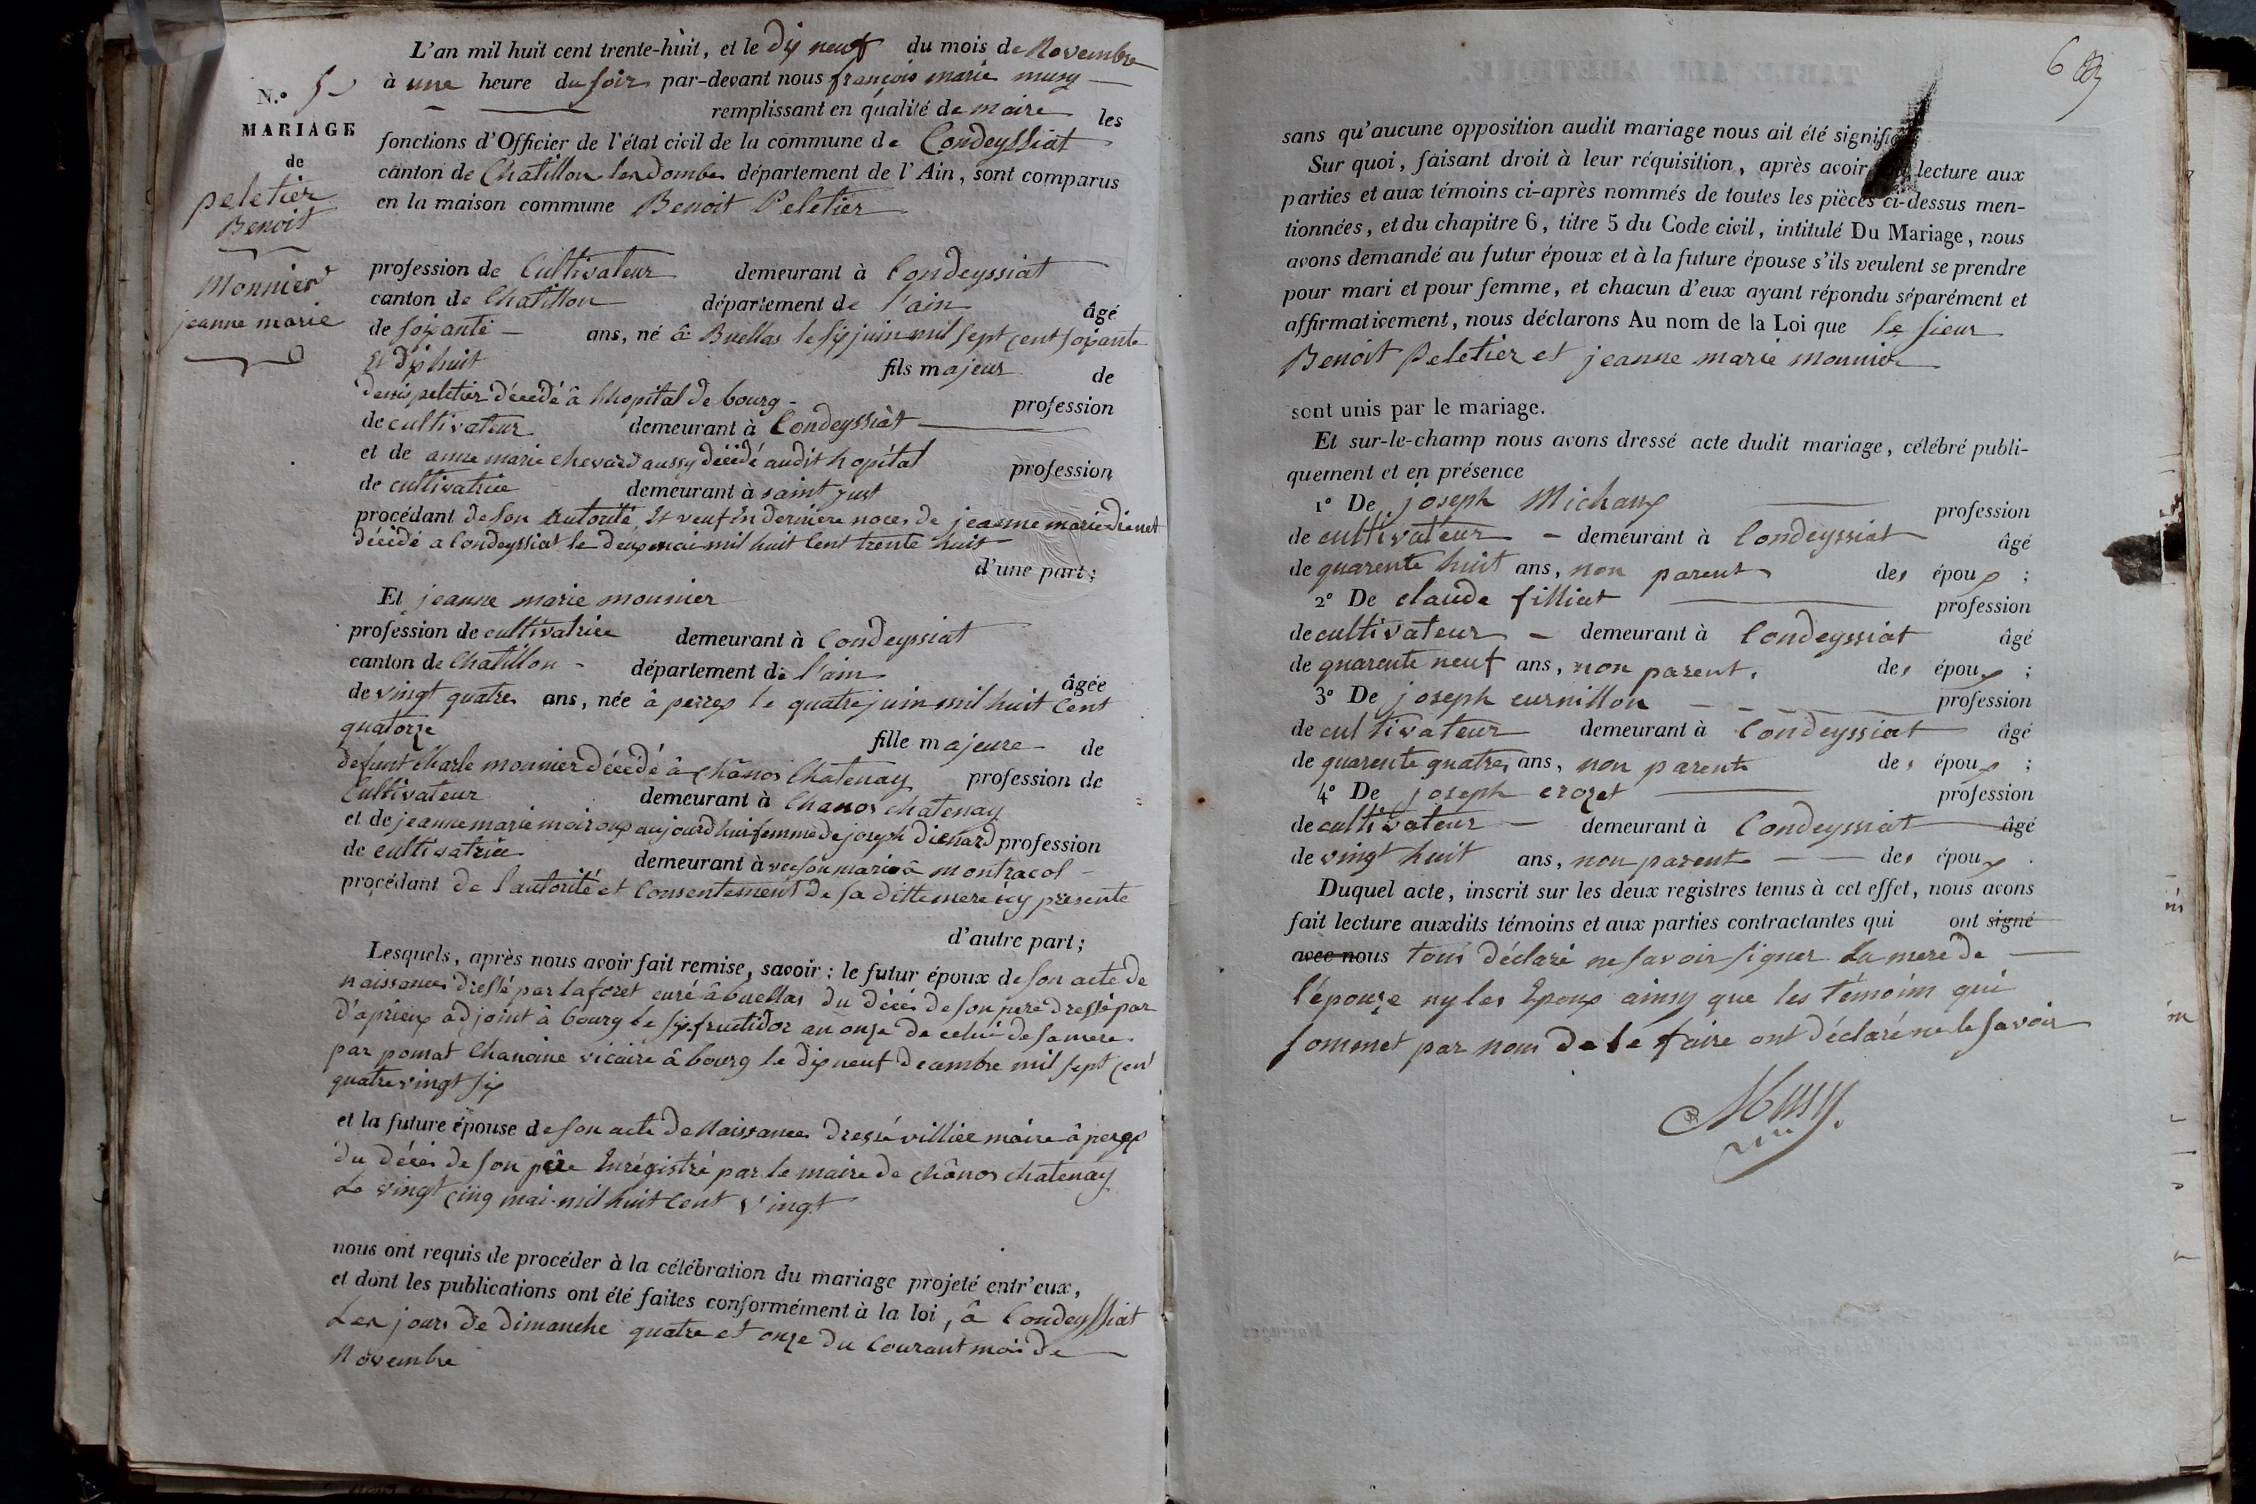 L'an mil huit cent trente-huit, et le dix neuf du mois de Novembre
à une heure du soir par-devant nous françois marie musy
remplissant en qualité de maire les
fonctions d'Officier de l'état civil de la commune de Condeyssiat
canton de Chatillon les Dombes département de l'Ain, sont comparus
en la maison commune Benoit Peletier
N.° 5
MARIAGE
de
peletier
Benoit
Monnier
jeanne marie
profession de Cultivateur demeurant à Condeyssiat
canton de Chatillon département de l'ain âgé
de soixante ans, né à Buellas le six juin mil sept cent soixante
Et dix huit fils majeur de
denis peletier décédé â lhopital de bourg profession
de cultivateur demeurant à Condeyssiat
et de anne marie chevard aussy décédé audit hopital profession
de cultivatrice demeurant à saint just
procédant de son autorité, Et veuf En derniere noces de jeanne marie dienet
décédé a Condeyssiat le deux mai mil huit Cent trente huit
d'une part;
Et jeanne marie monnier
profession de cultivatrice demeurant à Condeyssiat
canton de Chatillon département de l'ain âgée
de vingt quatre ans, née â perrex le quatre juin mil huit Cent
quatorze fille majeure de
defunt Charle monnier décédé â Chânos Chatenay profession de
Cultivateur demeurant à Chanos chatenay
et de jeanne marie moiroux aujourd'hui femme de joseph dienard profession
de cultivatrice demeurant à vec son mari â montracol
procédant de l'autorité et Consentement de sa ditte mere icy presente
d'autre part;
Lesquels, après nous avoir fait remise, savoir: le futur époux de son acte de
naissances dressé par laforet curé â buellas du décés de son pere dressé par
d'aprieux adjoint à bourg le six fructidor an onze de celui de sa mere
par pomat Chanoine vicaire â bourg le dix neuf decambre mil sept cent
quatre vingt six
et la future épouse de son acte de Naissances dressé villier maire â perrex
du décés de son père Enrégistré par le maire de chânos chatenay
Le vingt cinq mai mil huit Cent vingt
nous ont requis de procéder à la célébration du mariage projeté entr'eux,
et dont les publications ont été faites conformément à la loi, â Condeyssiat
Les jours de dimanche quatre et onze du Courant mois de
Novembre
6
sans qu'aucune opposition audit mariage nous ait été signifiée
Sur quoi, faisant droit à leur réquisition, après avoir lecture aux
parties et aux témoins ci-après nommés de toutes les pièces ci-dessus men-
tionnées, et du chapitre 6, titre 5 du Code civil, intitulé Du Mariage, nous
avons demandé au futur époux et à la future épouse s'ils veulent se prendre
pour mari et pour femme, et chacun d'eux ayant répondu séparément et
affirmativement, nous déclarons Au nom de la Loi que le sieur
Benoit Peletier et jeanne marie monnier
sont unis par le mariage.
Et sur-le-champ nous avons dressé acte dudit mariage, célébré publi-
quement et en présence
1° De joseph Michaux profession
de cultivateur demeurant à Condeyssiat âgé
de quarente huit ans, non parent des époux;
2° De claude filliat profession
de cultivateur demeurant à Condeyssiat âgé
de quarente neuf ans, non parent. des époux;
3° De joseph curnillon profession
de cultivateur demeurant à Condeyssiat âgé
de quarente quatre ans, non parent des époux;
4° De joseph crozet profession
de cultivateur demeurant à Condeyssiat âgé
de vingt huit ans, non parent des époux.
Duquel acte, inscrit sur les deux registres tenus à cet effet, nous avons
fait lecture auxdits témoins et aux parties contractantes qui ont signé
avec nous tous déclaré ne savoir signer La mere de
l'épouze ny les Epoux ainsy que les témoins qui
sommet par nous de le faire ont déclaré ne le savoir
Musy